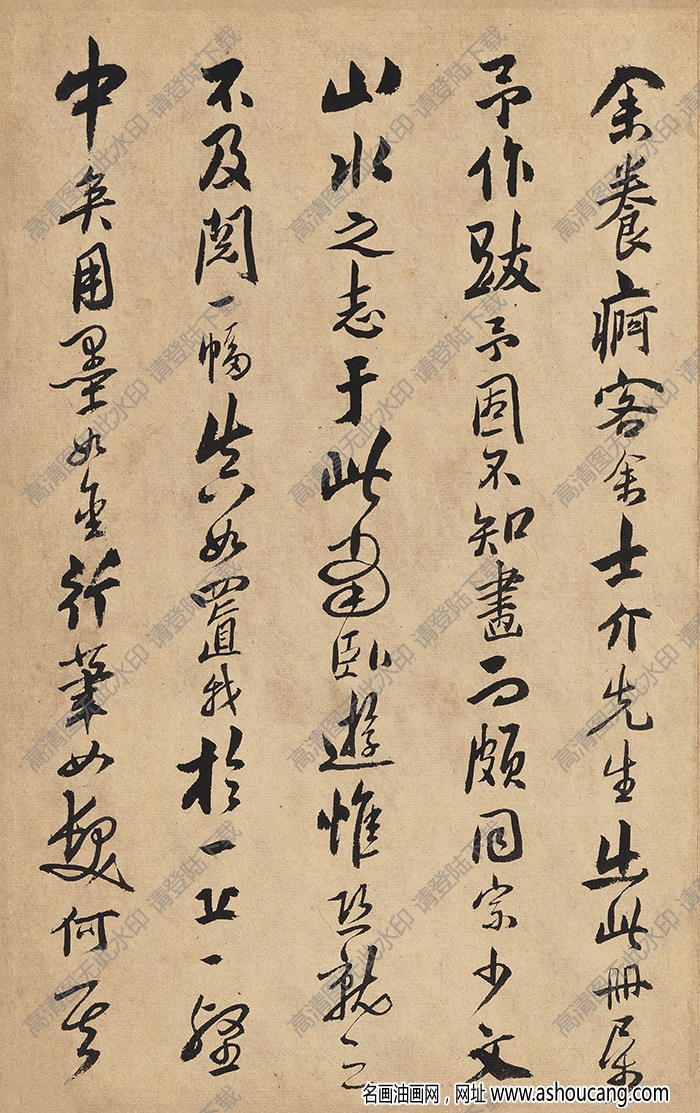 余養痾客舍士介先生出此冊屬
予作跋予固不知畫而頗同宗少文
山水之志于此臥遊惟恐就之
不及閱一幅真如置我於一丘一壑
中矣用墨如金行筆如何其
高清图无此水印 请登陆下载
名画油画网，网址 www.ashoucang.com